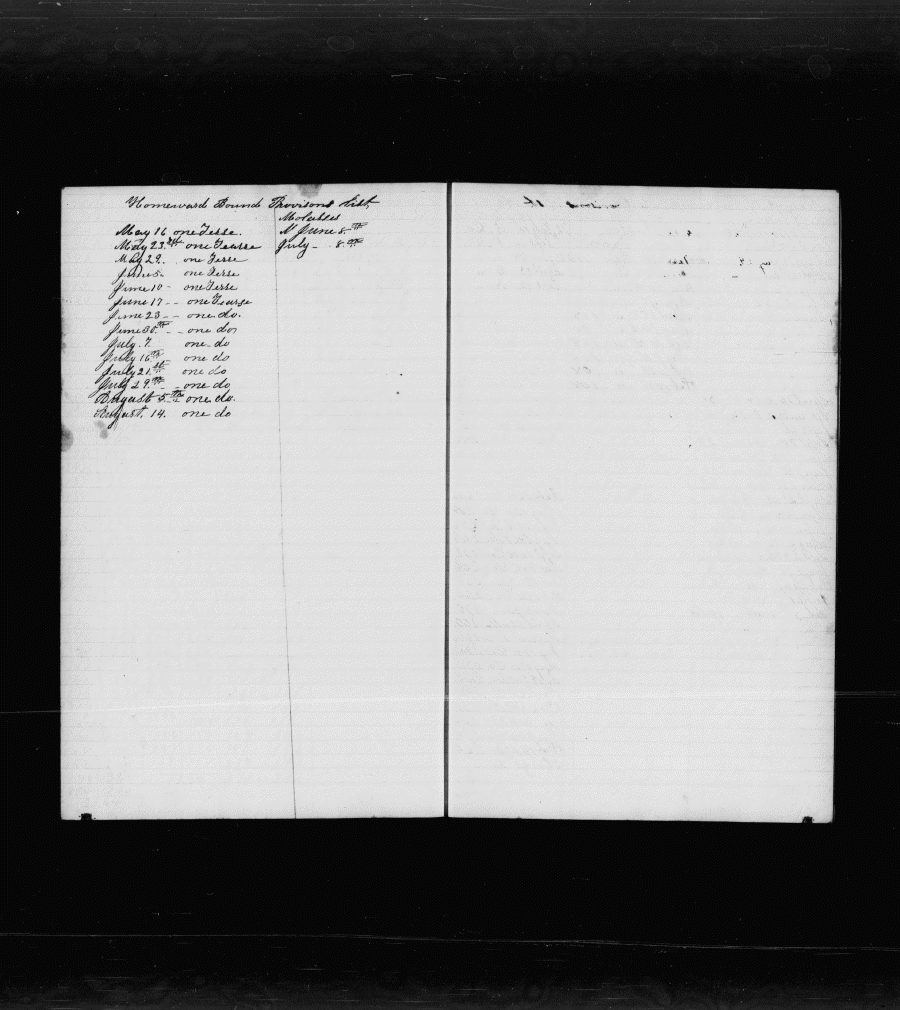 Homeward Bound Provisons list
May 16 one Terse.
May 23.th one Tearse
May 29. one Terse
June 5. one Terse
June 10 - one Terse
June 17 - - one Tearse
June 23 - - one do.
June 30.th - - one do
July. 7. one do
July 16th one do
July 21.st one do
July 29.th - one do
August 5th one do.
August. 14. one do
Molasses
June 8th
July - 8th